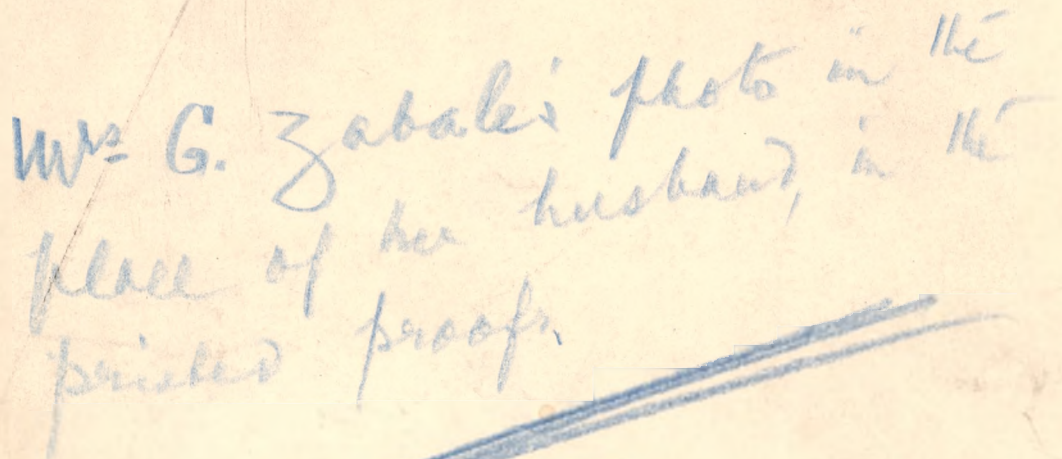 Mrs G. Zabale's photo in the
place of her husband, in the
printed proofs.